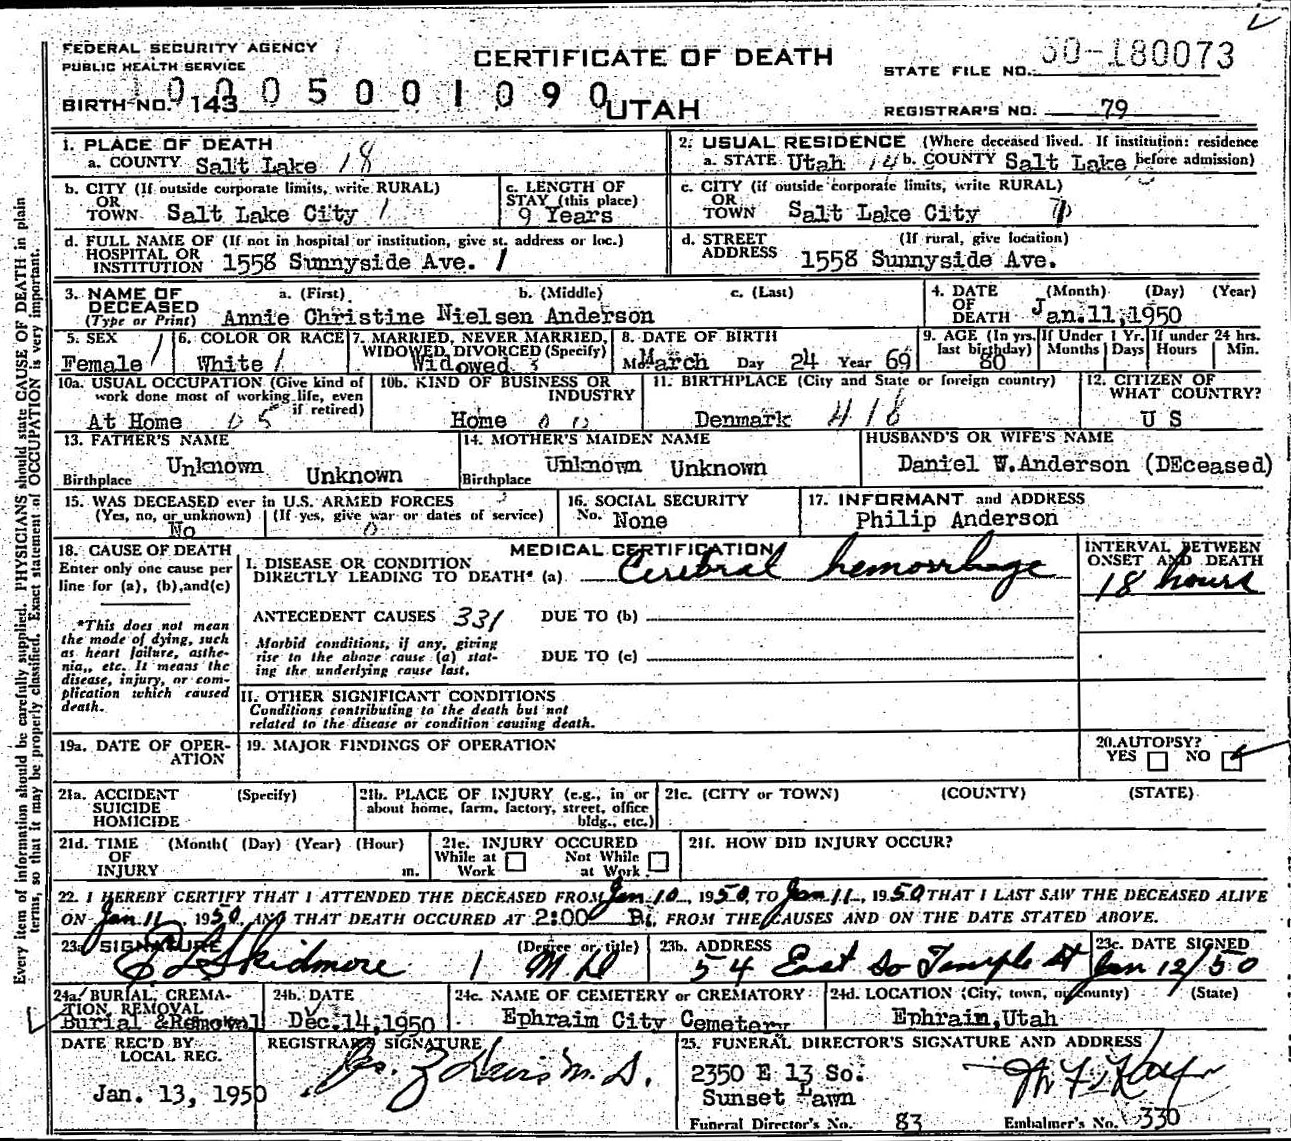 FEDERAL SECURITY AGENCY
PUBLIC HEALTH SERVICE
CERTIFICATE OF DEATH
STATE FILE NO. 50-180073
BIRTH NO. 143
0005001090
UTAH
REGISTRAR'S NO. 79
1. PLACE OF DEATH
a. COUNTY Salt Lake 18
2. USUAL RESIDENCE (Where deceased lived. If institution: residence before admission)
a. STATE Utah 14 b. COUNTY Salt Lake
b. CITY (If outside corporate limits, write RURAL)
OR
TOWN Salt Lake City 1
c. LENGTH OF STAY (this place)
9 Years
c. CITY (if outside corporate limits, write RURAL)
OR
TOWN Salt Lake City
d. FULL NAME OF (If not in hospital or institution, give st. address or loc.)
HOSPITAL OR
INSTITUTION 1558 Sunnyside Ave. 1
d. STREET ADDRESS (If rural, give location)
1558 Sunnyside Ave.
3. NAME OF DECEASED (Type or Print) a. (First) b. (Middle) c. (Last)
Annie Christine Nielsen Anderson
4. DATE OF DEATH (Month) (Day) (Year)
Jan.11,1950
5. SEX
Female 1
6. COLOR OR RACE
White 1
7. MARRIED, NEVER MARRIED, WIDOWED, DIVORCED (Specify)
Widowed 3
8. DATE OF BIRTH
Mo. March Day 24 Year 69
9. AGE (In yrs. last birthday) 80
If Under 1 Yr. Months Days
If under 24 hrs. Hours Min.
10a. USUAL OCCUPATION (Give kind of work done most of working life, even if retired)
At Home
10b. KIND OF BUSINESS OR INDUSTRY
Home
11. BIRTHPLACE (City and State or foreign country)
Denmark 418
12. CITIZEN OF WHAT COUNTRY?
U S
13. FATHER'S NAME
Unknown
Birthplace Unknown
14. MOTHER'S MAIDEN NAME
Unknown
Birthplace Unknown
HUSBAND'S OR WIFE'S NAME
Daniel W.Anderson (DEceased)
15. WAS DECEASED ever in U.S. ARMED FORCES
(Yes, no, or unknown) (If yes, give war or dates of service)
No 0
16. SOCIAL SECURITY
No. None
17. INFORMANT and ADDRESS
Philip Anderson
18. CAUSE OF DEATH
Enter only one cause per line for (a), (b), and (c)
*This does not mean the mode of dying, such as heart failure, asthenia,, etc. It means the disease, injury, or complication which caused death.
MEDICAL CERTIFICATION
I. DISEASE OR CONDITION
DIRECTLY LEADING TO DEATH* (a) Cerebral hemorrhage
ANTECEDENT CAUSES 331 DUE TO (b)
Morbid conditions, if any, giving rise to the above cause (a) stating the underlying cause last.
DUE TO (c)
II. OTHER SIGNIFICANT CONDITIONS
Conditions contributing to the death but not related to the disease or condition causing death.
INTERVAL BETWEEN ONSET AND DEATH
18 hours
19a. DATE OF OPERATION
19. MAJOR FINDINGS OF OPERATION
20. AUTOPSY?
YES NO
21a. ACCIDENT (Specify)
SUICIDE
HOMICIDE
21b. PLACE OF INJURY (e.g., in or about home, farm, factory, street, office bldg., etc.)
21c. (CITY or TOWN) (COUNTY) (STATE)
21d. TIME OF INJURY (Month( (Day) (Year) (Hour) m.
21e. INJURY OCCURED
While at Work Not While at Work
21f. HOW DID INJURY OCCUR?
22. I HEREBY CERTIFY THAT I ATTENDED THE DECEASED FROM Jan 10, 1950, TO Jan 11, 1950 THAT I LAST SAW THE DECEASED ALIVE
ON Jan 11 1950, AND THAT DEATH OCCURED AT 2:00 P. FROM THE CAUSES AND ON THE DATE STATED ABOVE.
23a SIGNATURE (Degree or title)
Skidmore 1 M D
23b. ADDRESS
54 East So Temple St
23c. DATE SIGNED
Jan 12/50
24a. BURIAL, CREMATION, REMOVAL
Burial &Removal
24b. DATE
Dec.14,1950
24c. NAME OF CEMETERY or CREMATORY
Ephraim City Cemetery
24d. LOCATION (City, town, or county) (State)
Ephrain,Utah
DATE REC'D BY LOCAL REG.
Jan. 13, 1950
REGISTRAR'S SIGNATURE
25. FUNERAL DIRECTOR'S SIGNATURE AND ADDRESS
2350 E 13 So.
Sunset Lawn
Funeral Director's No. 83
Embalmer's No. 330
Every item of information should be carefully supplied. PHYSICIANS should state CAUSE OF DEATH in plain
terms, so that it may be properly classified. Exact statement of OCCUPATION is very important.